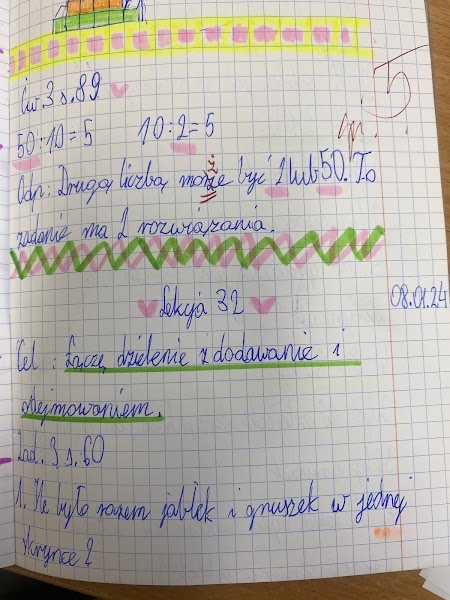 Ćw. 3 s. 89
5
50 : 10 = 5 10 : 2 = 5
Odp: Drugą liczbą może być 2 lub 50. To
zadanie ma 2 rozwiązania.
Lekcja 32 08.01.24
Cel : Łączę dzielenie z dodawanie i
odejmowaniem.
Zad. 3 s. 60
1. Ile było razem jabłek i gruszek w jednej
skrzynce ?